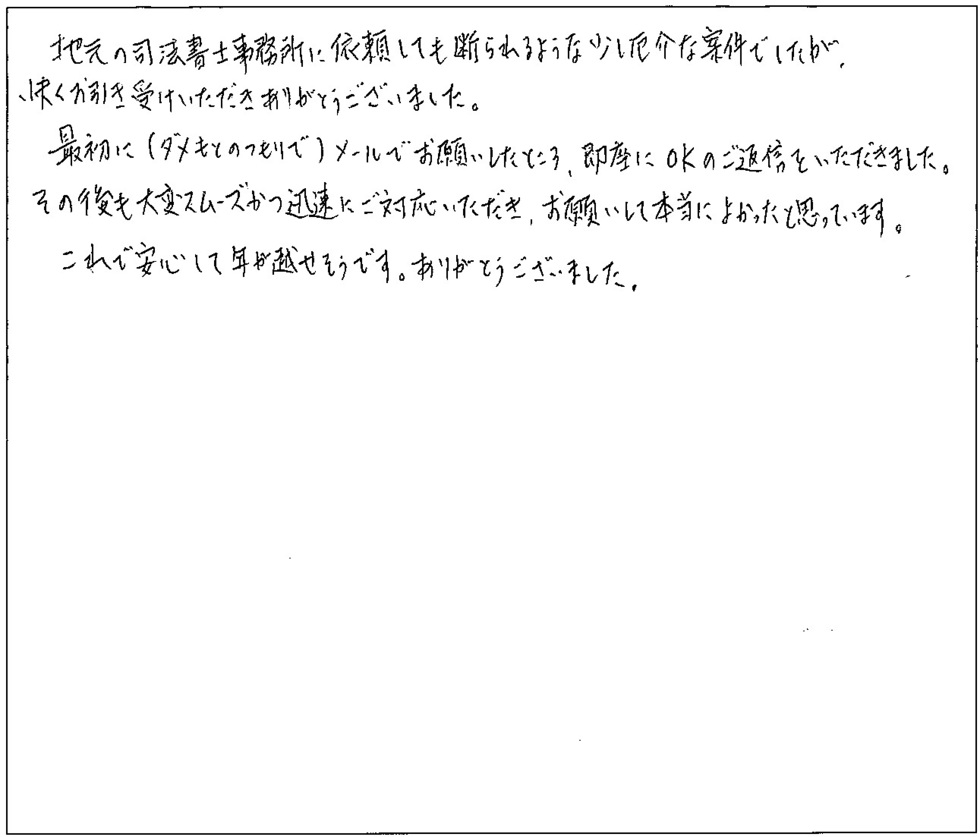 地元の司法書士事務所に依頼しても断られるような少し厄介な案件でしたが、
快くお引き受けいただきありがとうございました。
最初に(ダメもとのつもりで)メールでお願いしたところ、即座にOKのご返信をいただきました。
その後も大変スムーズかつ迅速にご対応いただき、お願いして本当によかったと思っています。
これで安心して年が越せそうです。ありがとうございました。